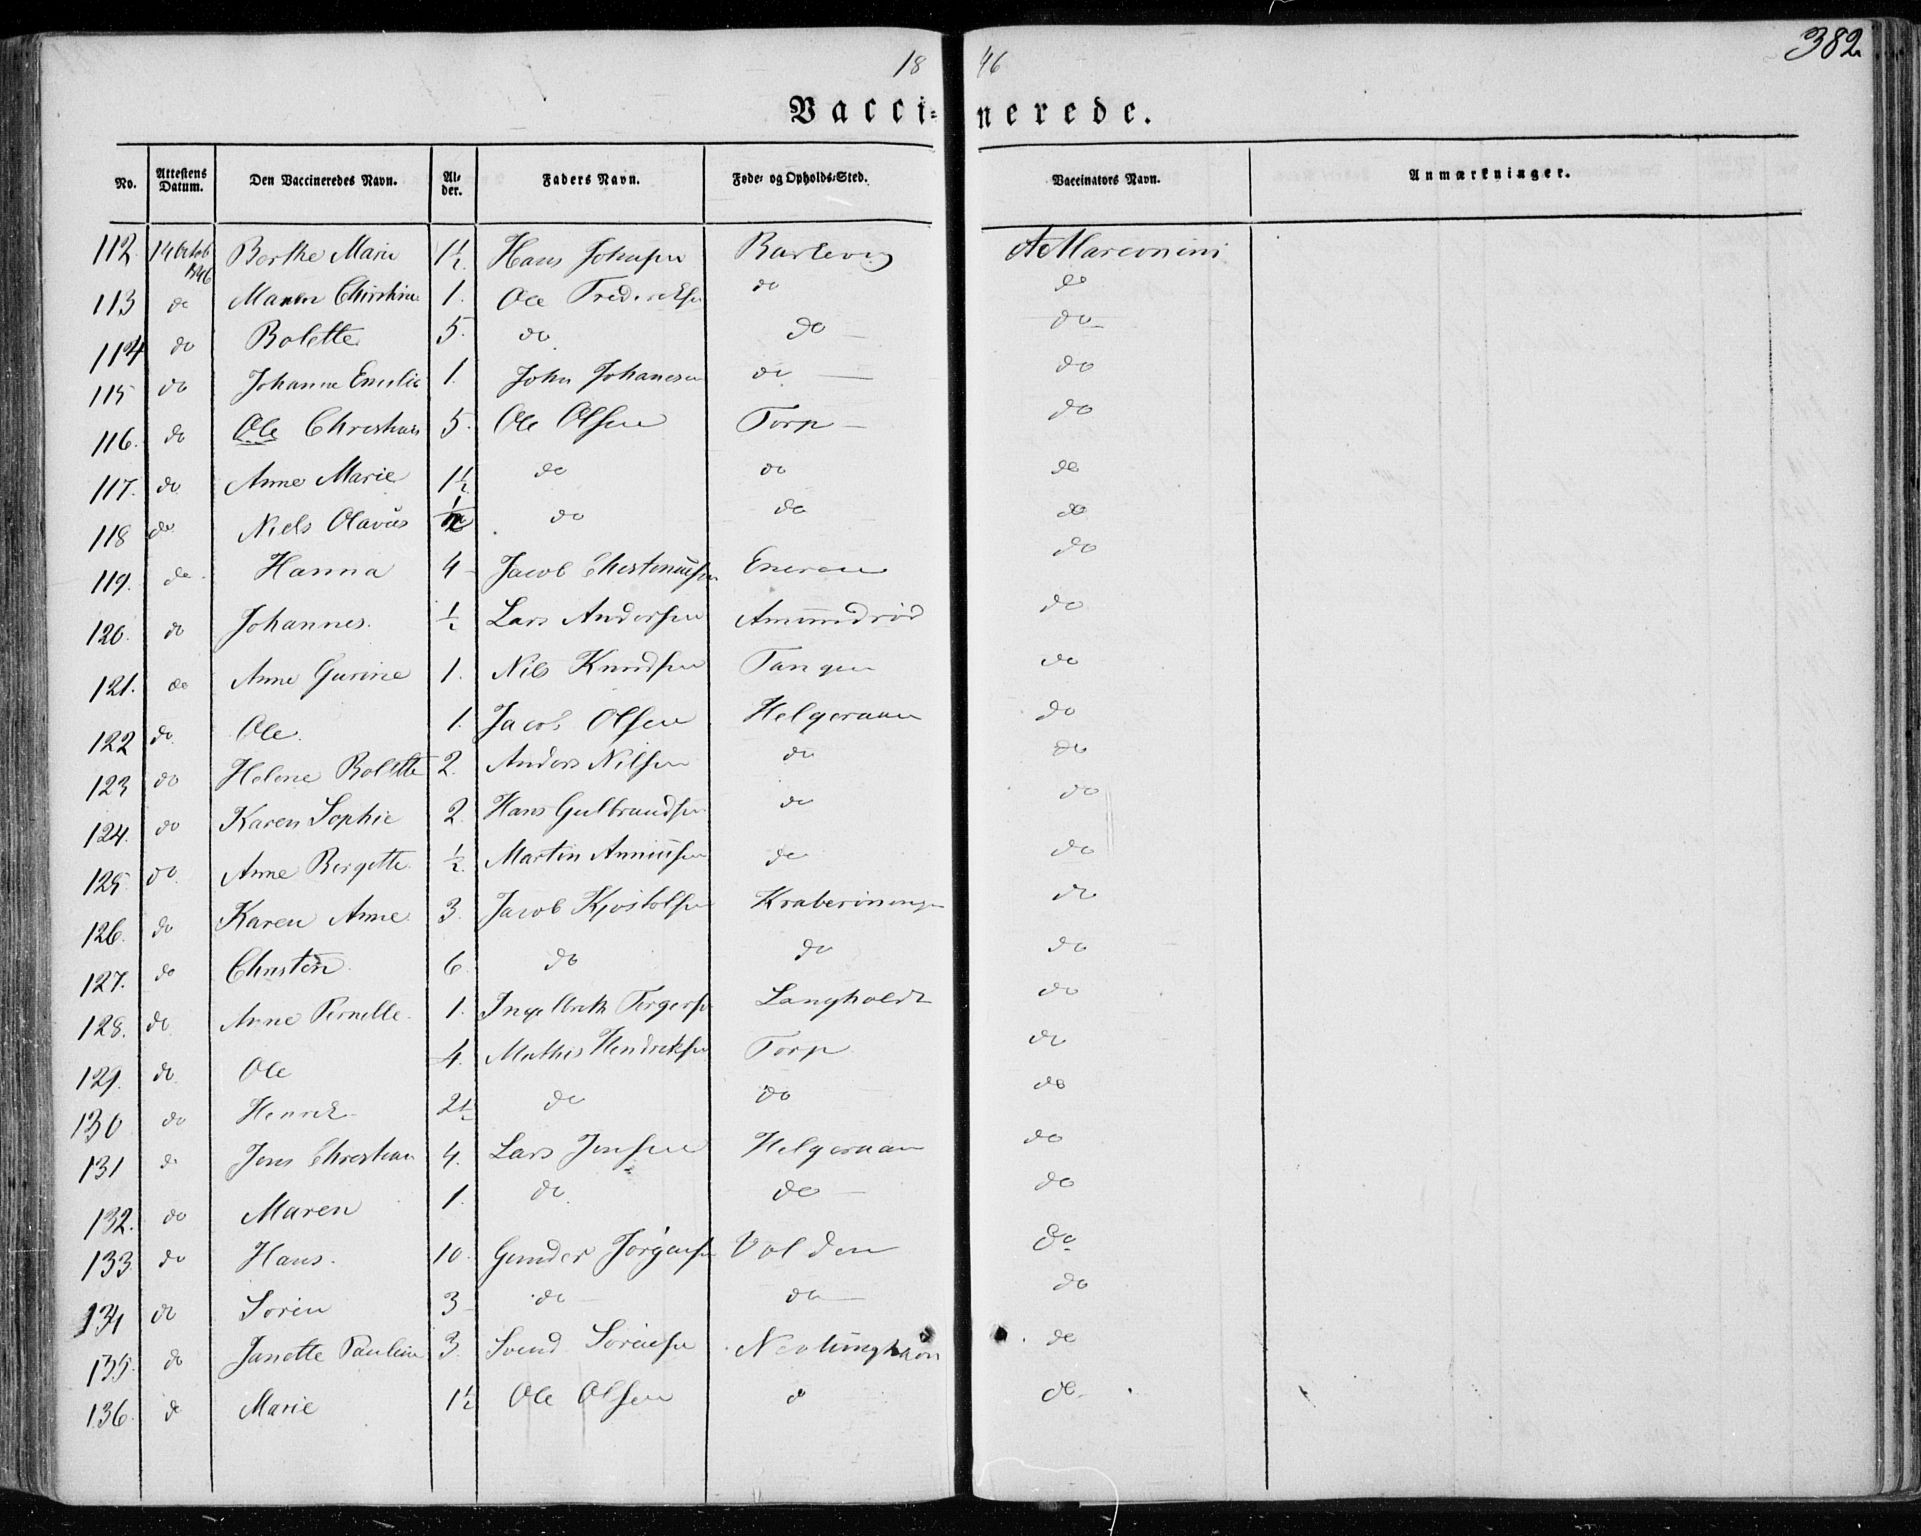 382
18 46
Vacci= nerede.
No. Attestens Datum. Den Vaccineredes Navn. Al= der. Faders Navn. Føde= og Opholds=Sted. Vaccinators Navn. Anmærkninger.
112. 14 Octob 1846 Berthe Marie 1½. Hans Johnsen Barlevig A Marconini
113 do Maren Christine 1. Ole Fredriksen do do
114 do Bolette 5. do do do
115 do Johanne Emilie 1. John Johanesen do do
116. do Ole Christian 5. Ole Olsen Torp do
117. do Anne Marie 1½ do do do
118 do Niels Olavus ½ do do do
119. do Hanna 4 Jacob do
120. do Johannes. ½ Lars Andersen Amundrød do
121. do Anne Gurine 1. Nils Knudsen Tangen do
122 do Ole 1. Jacob Olsen Helgeraaen do
123 do Helene Bolette 2. Anders Nilsen do do
124. do Karen Sophie 2. Hans Gulbrandsen do do
125. do Anne Bergette ½. Martin do do
126. do Karen Anne 3. Jacob Kjøstolsen do
127. do Christen 6. do do do
128. do Anne Pernelle 1. Ingelbreth Langholdt do
129. do Ole 4. Mathis Hendriksen Torp do
130 do Henrik 2½ do do do
131 do Jens Christian 4. Lars Jensen Helgeraaen do
132. do Maren 1. do do do
133 do Hans. 10. Gunder Jørgensen Volden do
134 do Soren 3 do do do
135. do Janette Pauline 3. Svend Sorensen Nevlunghavn do
136. do Marie 1½ Ole Olsen do do